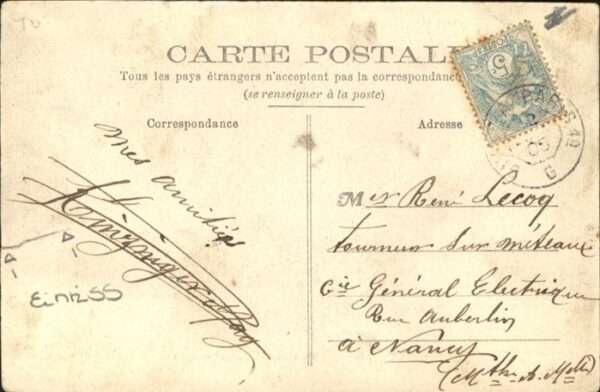 CARTE POSTALE
Tous les pays étrangers n'acceptent pas la correspondance
(se renseigner à la poste)
Correspondance
Adresse
mes amitiés
PARIS
Mr René Lecoq
tourneur sur méteaux
Cie Général Electrique
Rue Auberlin
à Nancy
(Mthe & Mlle)